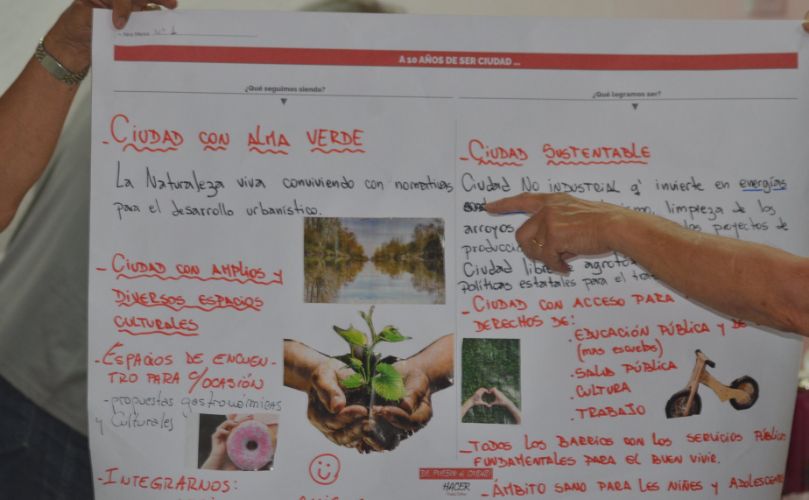 Nº 1
A 10 AÑOS DE SER CIUDAD ...
¿Qué seguimos siendo?
- CIUDAD CON ALMA VERDE
La Naturaleza viva conviviendo con normativas
para el desarrollo urbanístico.
- CIUDAD CON AMPLIOS Y
DIVERSOS ESPACIOS
CULTURALES
- ESPACIOS DE ENCUEN-
TRO PARA C/OCASIÓN
- propuestas gastronómicas
y Culturales
- INTEGRARNOS:
¿Qué logramos ser?
- CIUDAD SUSTENTABLE
Ciudad No INDUSTRIAL q' invierte en energías
limpieza de los
arroyos los proyectos de
Ciudad
políticas estatales para el
- CIUDAD CON ACCESO PARA
DERECHOS DE:
. EDUCACIÓN PÚBLICA Y DE
(mas escuelas)
. SALUD PÚBLICA
. CULTURA
. TRABAJO
- TODOS LOS BARRIOS CON LOS SERVICIOS PÚBLICOS
FUNDAMENTALES PARA EL BUEN VIVIR.
- ÁMBITO SANO PARA LES NIÑES Y ADOLESCENTES
DE PUEBLO A CIUDAD
HACER